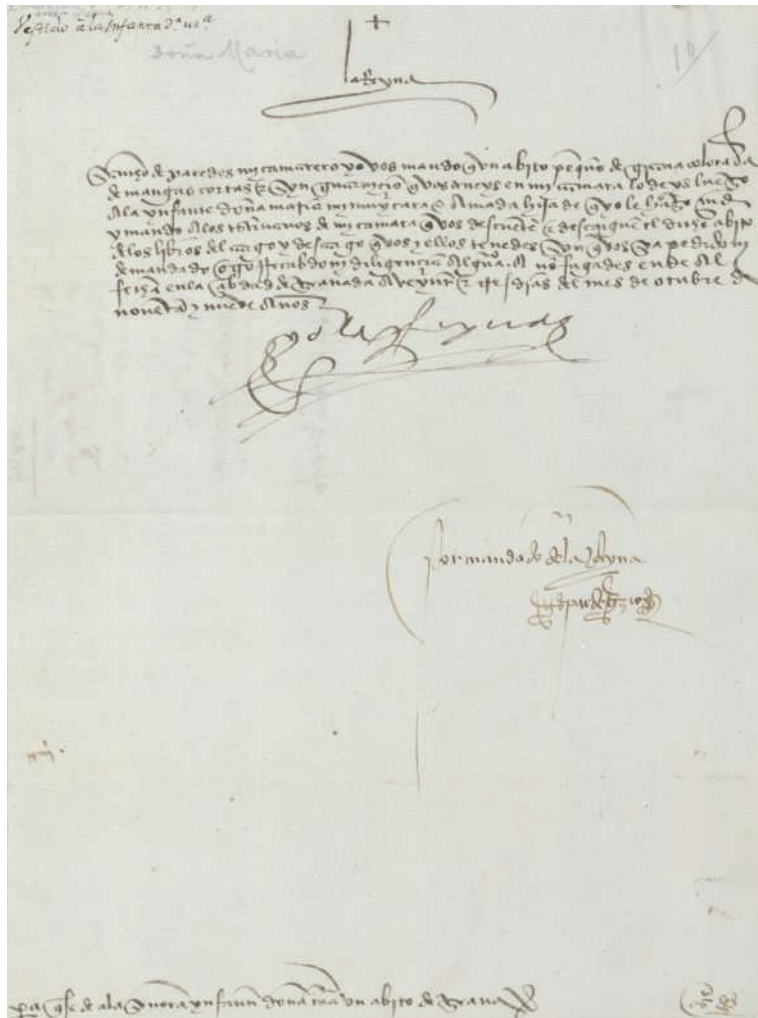 Vestido a la Infanta Dª Mª
Doña Maria
10
la Reyna
Sancho de paredes my camarero yo vos mando q un abito pequeño de grana colorada
de mangas cortas e syn guarnicio q vos teneys en my camara lo deys luego
a la ynfante doña maria my muy cara e amada hija de q yo le hago md
y mando a los escrivanos de my camara q vos descuente e descarguen el dicho abito
de los libros del cargo y descargo q vos y ellos tenedes syn q vos sea pedido ny
demandado otro Recabdo ny diligencia alguna. e no fagades ende al
fecha en la çibdad de Granada a veynte e dias del mes de otubre de
noventa y nueve años
yo la Reyna
Por mandado de la Reyna
pa q se de a la señora ynfante doña mª un abito de grana